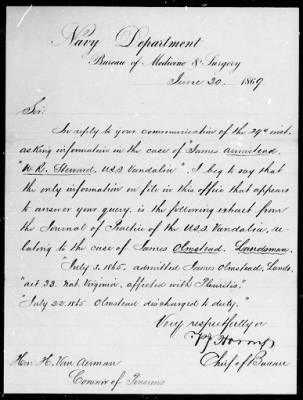 Navy Department
Bureau of Medicine & Surgery
June 30. 1869
Sir:
In reply to your communication of the 29th inst.
asking information in the case of "James Armistead,
"W. R. Steward. U.S.S. Vandalia", I beg to say that
the only information on file in this office that appears
to answer your query, is the following extract from
the Journal of Practice of the U.S.S. Vandalia, re-
lating to the case of James Olmstead, Landsman.
"July 3. 1865, admitted James Olmstead, Lands.
"aet 33. Nat. Virginia, affected with Pleuritis."
"July 22. 1865 Olmstead discharged to duty."
Very respectfully
Chief of Bureau
Hon. H. Van Aernam
Commr of Pensions